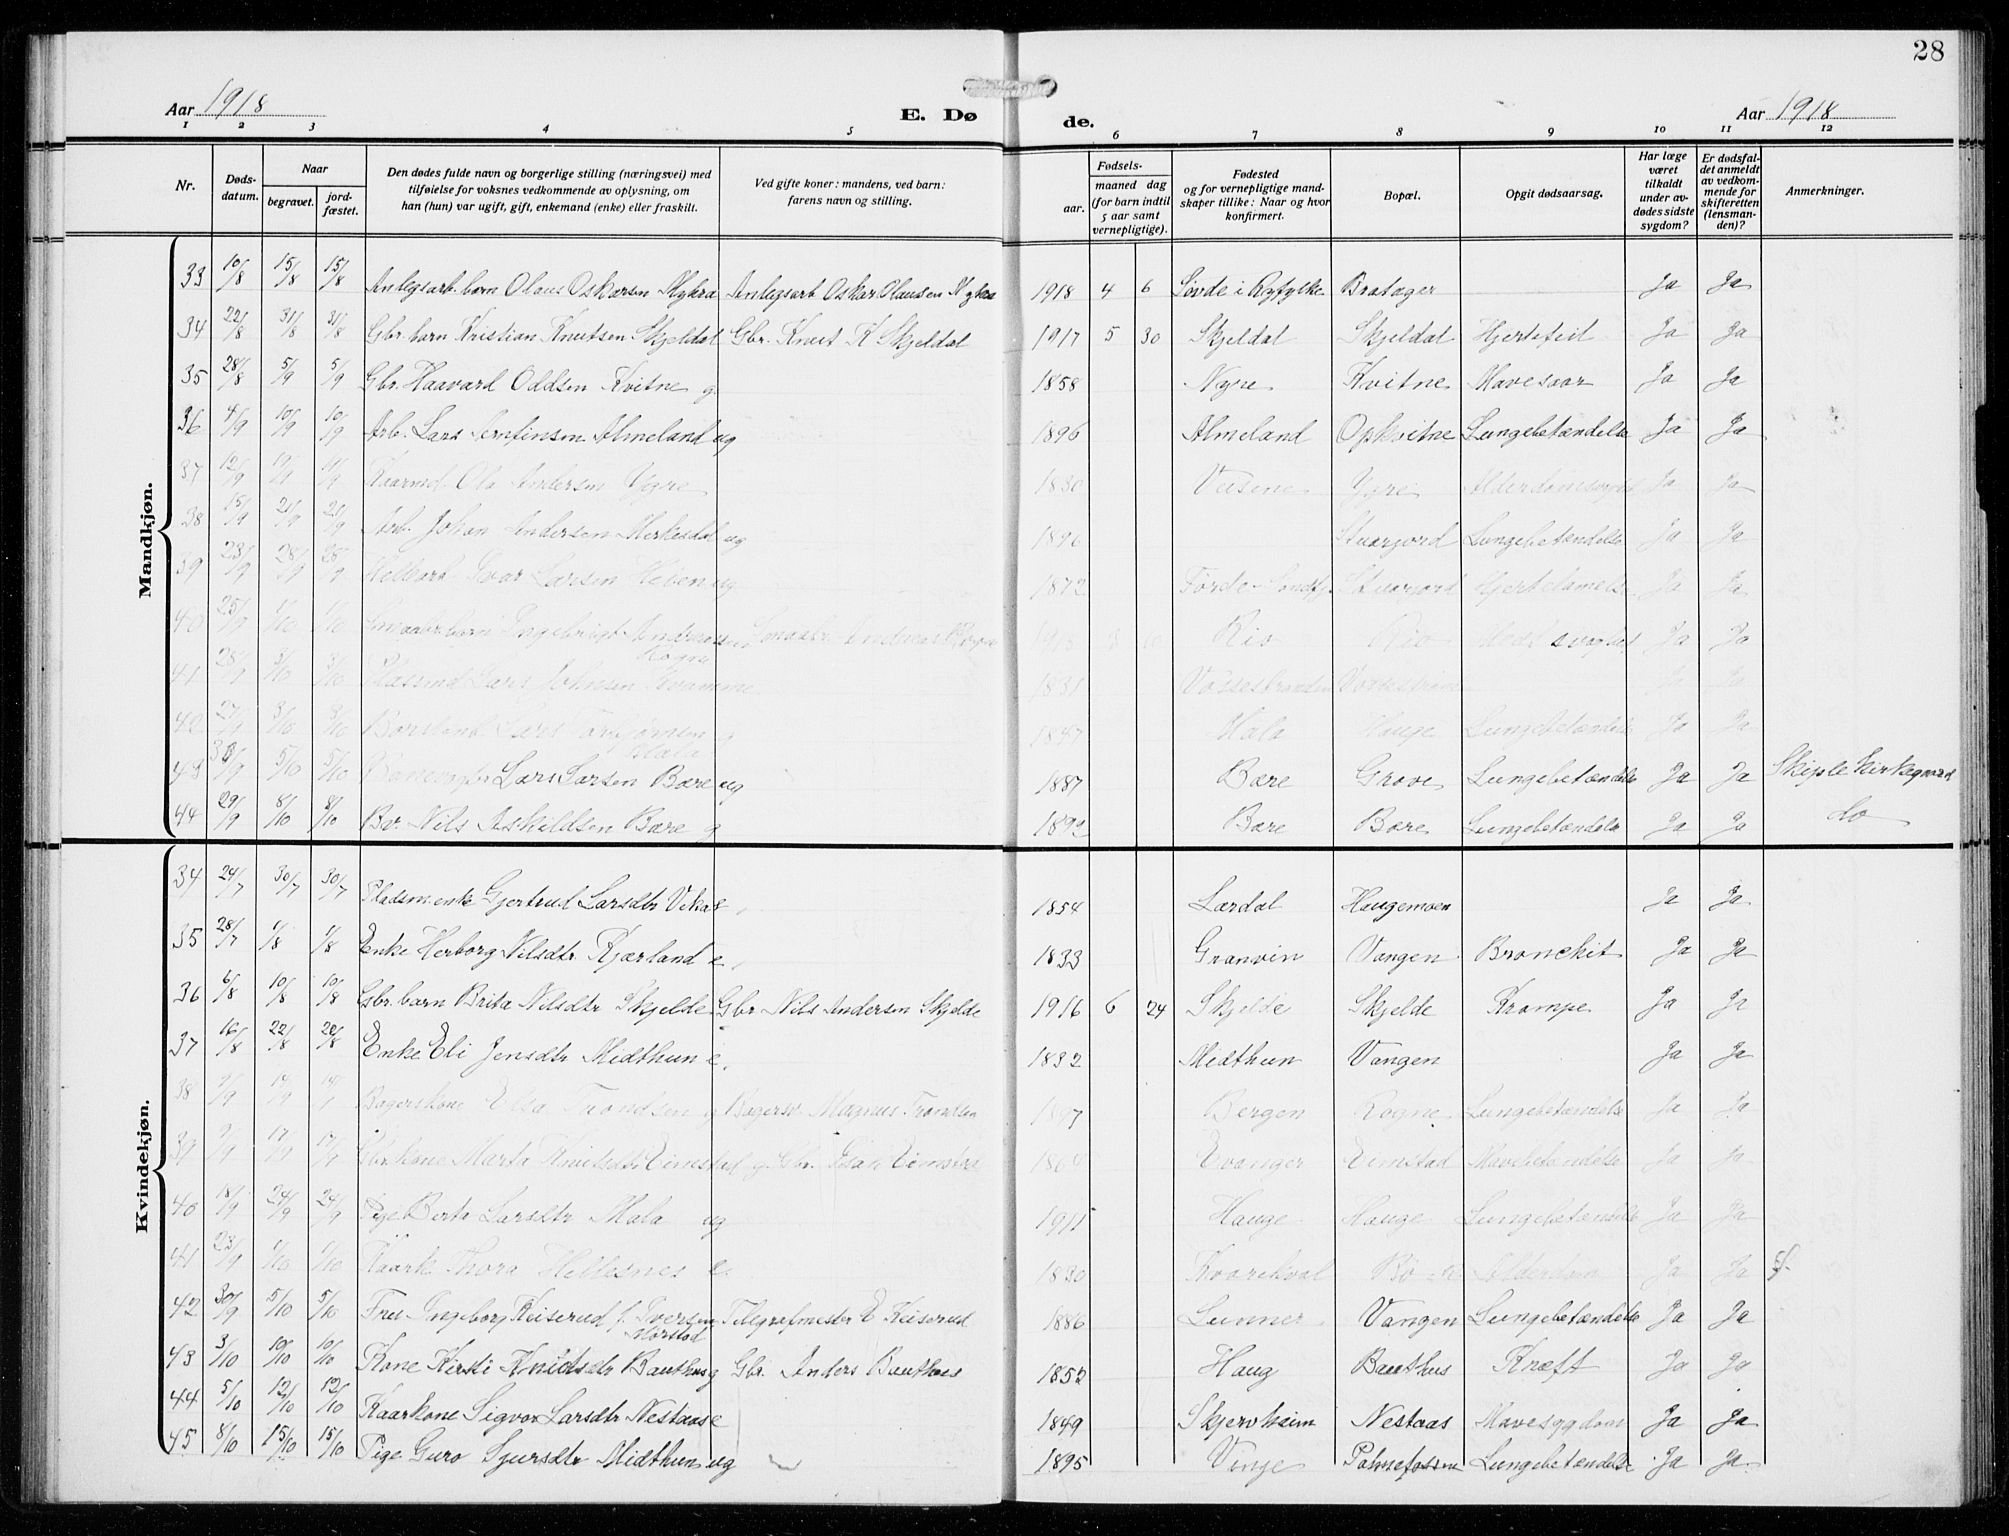 28
Aar 1918
E. Dø
de.
Aar 1918
1 2 3 4 5 6 7 8 9 10 11 12
Nr.
Døds-datum.
Naar
begravet.
jord-fæstet.
Den dødes fulde navn og borgerlige stilling (næringsvei) med tilføielse for voksnes vedkommende av oplysning, om han (hun) var ugift, gift, enkemand (enke) eller fraskilt.
Ved gifte koner: mandens, ved barn: farens navn og stilling.
Fødsels-
aar.
maaned dag (for barn indtil 5 aar samt vernepligtige).
Fødested og for vernepligtige mandskaper tillike: Naar og hvor konfirmert.
Bopæl.
Opgit dødsaarsag.
Har læge været tilkaldt under avdødes sidste sygdom?
Er dødsfaldet anmeldt av vedkommende for skifteretten (lensmanden)?
Anmerkninger.
Mandkjøn.
33 10/8 15/8 15/8 Anlegsarb. barn Olaus Oskarsen Myhra Anlegsarb Oskar Olausen Myhra 1918 4 6 Søvde i Ryfylke Bratager Ja Ja
34 22/8 31/8 31/8 Gbr. barn Kristian Knutsen Skjeldal Gbr. Knut K Skjeldal 1917 5 30 Skjeldal Skjeldal Hjertefeil Ja Ja
35 28/8 5/9 5/9 Gbr. Haavard Oddsen Kvitne g. 1858 Nyre Kvitne Mavesaar Ja Ja
36 4/9 10/9 10/9 Arb. Lars Arnfinsen Almeland ug 1896 Almeland Opkvitne Lungebetændelse Ja Ja
37 12/9 Kaarmd. Ola Andersen Ygre 1830 Ygre Ja Ja
38 15/9 21/9 21/9 Arb. Johan Andersen Merkesdal ug 1896 Stuarjord Lungebetændelse Ja Ja
39 23/9 28/9 28/9 Ivar Larsen ug 1872 Førde Stuarjord Hjertelamelse Ja Ja
40 25/9 1/10 1/10 Smaabr. barn Ingebrigt Andreassen Rogne Smaabr. Andreas Rogne Ris Ris Ja Ja
41 28/9 3/10 3/10 Plassmd Lars Johnsen Kvamme 1831 Vossestranden Ja Ja
42 27/9 3/10 3/10 Lars Torbjørnsen Mala g Mala Hauge Lungebetændelse Ja Ja
43 30/9 5/10 5/10 Banevogter Lars Larsen Bære ug 1887 Bære Grove Lungebetændelse Ja Ja Skiple Kirkegaard
44 29/9 8/10 8/10 Bv. Nils Askildsen Bære g Bære Bære Lungebetændelse Ja Ja do
Kvindekjøn.
34 24/7 30/7 30/7 Pladsm. enke Gjertrud Larsdtr Veka e. 1854 Lærdal Haugemoen Ja Ja
35 28/7 1/8 1/8 Enke Herborg Nilsdtr. Kjærland e. 1833 Granvin Vangen Bronchit Ja Ja
36 6/8 10/8 10/8 Gbr. barn Brita Nilsdtr Skjelde Gbr Nils Andersen Skjelde 1916 6 24 Skjelde Skjelde Krampe Ja Ja
37 16/8 22/8 22/8 Enke Eli Jensdtr Midthun e. 1832 Midthun Vangen Ja Ja
38 9/9 14/9 14/9 Bagerskone Elsa Trondsen g Bagersv. Magnus Trondsen Bergen Rogne Lungebetændelse Ja Ja
39 9/9 17/9 17/9 Gbr. kone Marta Knutsdtr Eimstad g. Gbr. Isak Eimstad 1864 Evanger Eimstad Mavebetændelse Ja Ja
40 18/9 24/9 24/9 Pige Berta Larsdtr Mala ug 1911 Hauge Hauge Lungebetændelse Ja Ja
41 23/9 1/10 1/10 Kaark. Thora Hellesnes e. 1830 Alderdom Ja Ja
42 30/9 5/10 5/10 Frue Ingeborg Keiserud f. Iversen Mørstad Telegrafmester E Keiserud 1886 Lunner Vangen Lungebetændelse Ja Ja
43 3/10 10/10 10/10 Kone Kirsti Knutsdtr Bauthus g Gbr. Anders Bauthus 1852 Haug Bauthus Kræft Ja Ja
44 5/10 12/10 12/10 Kaarkone Sigvor Larsdtr Nestaas e 1849 Skjervheim Nestaas Mavesygdom Ja Ja
45 8/10 15/10 15/10 Pige Guro Sjursdtr Midthun ug 1895 Vinje Palmefossen Lungebetændelse Ja Ja